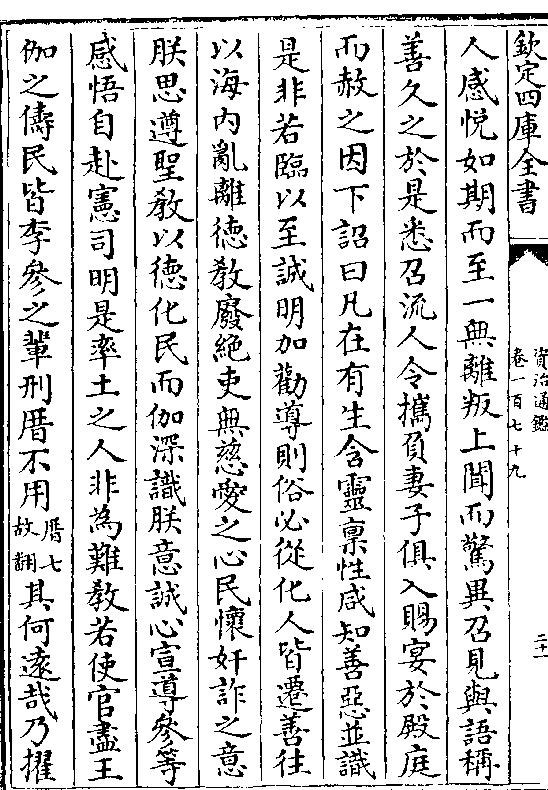 欽定四庫全書
資治通鑑
卷一百七十九
二十一
人感悅如期而至一無離叛上聞而驚異召見與語稱
善久之於是悉召流人令攜負妻子俱入賜宴於殿庭
而赦之因下詔曰凡在有生含靈稟性咸知善惡並識
是非若臨以至誠明加勸導則俗必從化人皆遷善往
以海內亂離德教廢絕吏無慈愛之心民懷奸詐之意
朕思遵聖教以德化民而伽深識朕意誠心宣導參等
感悟自赴憲司明是率土之人非為難教若使官盡王
伽之儔民皆李參之輩刑厝不用厝七故翻其何遠哉乃擢